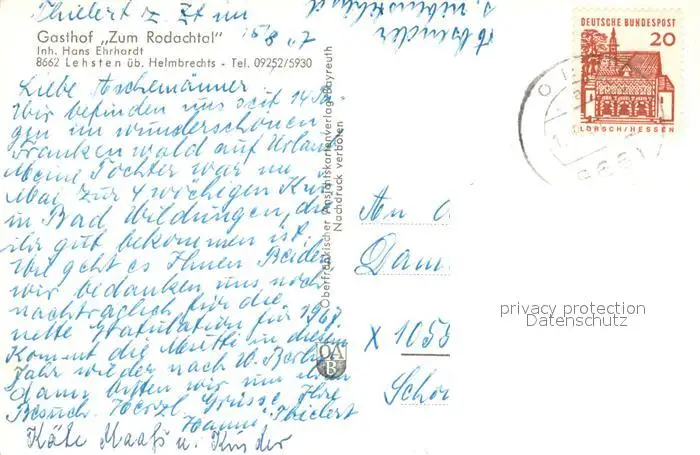 Thielert z. Zt im
15/8 67
Absender
Gasthof „Zum Rodachtal"
Inh. Hans Ehrhardt
8662 Lehsten üb. Helmbrechts - Tel. 09252/5930
Liebe Aschemänner
Wir befinden uns seit 14 Ta
gen im wunderschönen
Frankenwald auf Urlaub
Meine Tochter war im
Mai zur 4 wöchigen Kur
in Bad Wildungen, die
ihr gut bekommen ist.
Wie geht es Ihnen Beiden
wir bedanken uns noch
nachträglich für die
nette Gratulation für 1967.
Kommt die Mutti in diesem
Jahr wieder nach W. Berlin
dann bitten wir um ihren
Besuch. Herzl. Grüsse Ihre
Hanni Thielert
Käte Maaß u. Kinder
Oberfränkischer Ansichtskartenverlag Bayreuth
Nachdruck verboten
OAB
DEUTSCHE BUNDESPOST
20
LORSCH/HESSEN
An
Dam
X 1055
Scho
privacy protection
Datenschutz